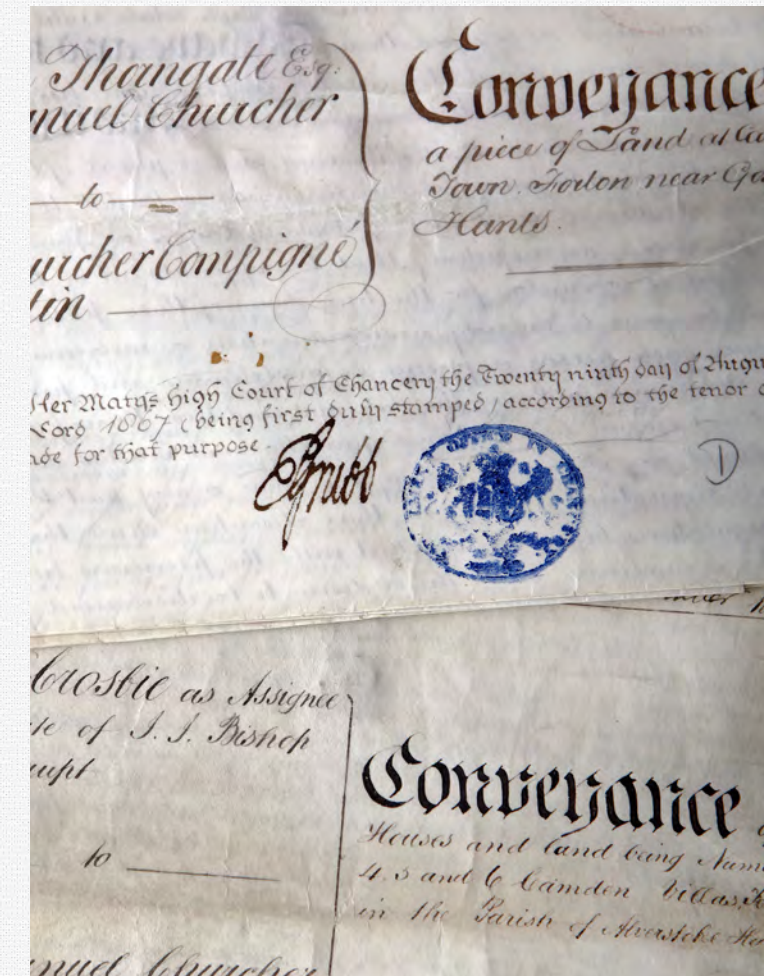 Thorngate Esq:
muel Churcher
to
urcher Compigné
tin
Conveyance
a piece of Land at Ca
Town. Forton near Go
Hants.
Her Matys High Court of Chancery the Twenty ninth day of Augu
Lord 1867 (being first duly stamped) according to the tenor o
ade for that purpose.
1
Crosbie as Assignee
te of J. J. Bishop
rupt
to
muel Churcher
Conveyance o
Houses and Land being Num
4. 5 and 6 Camden Villas, Fo
in the Parish of Alverstoke Ha